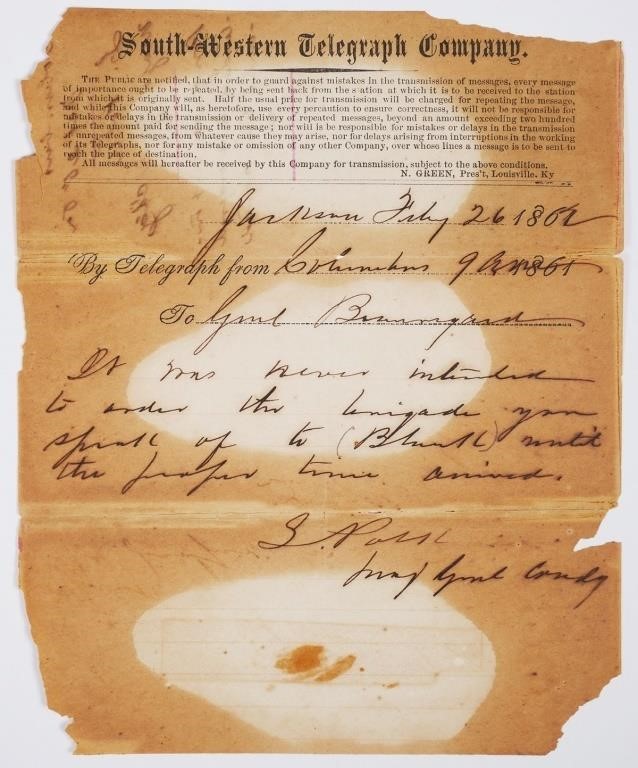 South-Western Telegraph Company.
THE PUBLIC are notified, that in order to guard against mistakes in the transmission of messages, every message
of importance ought to be repeated, by being sent back from the station at which it is to be received to the station
from which it is originally sent. Half the usual price for transmission will be charged for repeating the message,
and while this Company will, as heretofore, use every percaution to ensure correctness, it will not be responsible for
mistakes or delays in the transmission or delivery of repeated messages, beyond an amount exceeding two hundred
times the amount paid for sending the message; nor will is be responsible for mistakes or delays in the transmission
of unrepeated messages, from whatever cause they may arise, nor for delays arising from interruptions in the working
of its Telegraphs, nor for any mistake or omission of any other Company, over whose lines a message is to be sent to
reach the place of destination.
All messages will hereafter be received by this Company for transmission, subject to the above conditions.
N. GREEN, Pres't, Louisville. Ky
Jackson Feby 26 1862
By Telegraph from Columbus 9 186
To Genl Beauregard
It was never intended
to order the brigade you
speak of to (Blank) until
the proper time arrived.
L. Polk
Maj Genl Comdg